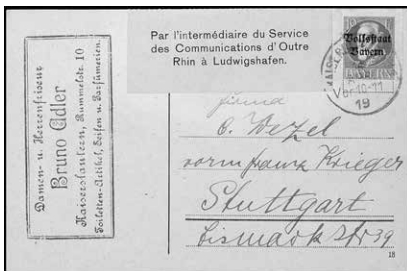 Damen- u. Herrenfriseur
Bruno Adler
Kaiserslautern, Rummelstr. 10
Toiletten-Artikel, Seifen u. Parfümerien.
Par l'intermédiaire du Service
des Communications d'Outre
Rhin à Ludwigshafen.
Volksstaat
Bayern
BAYERN
10-11
19
Firma
C. Wezel
vorm franz Krieger
Stuttgart
bismarck str 39
18